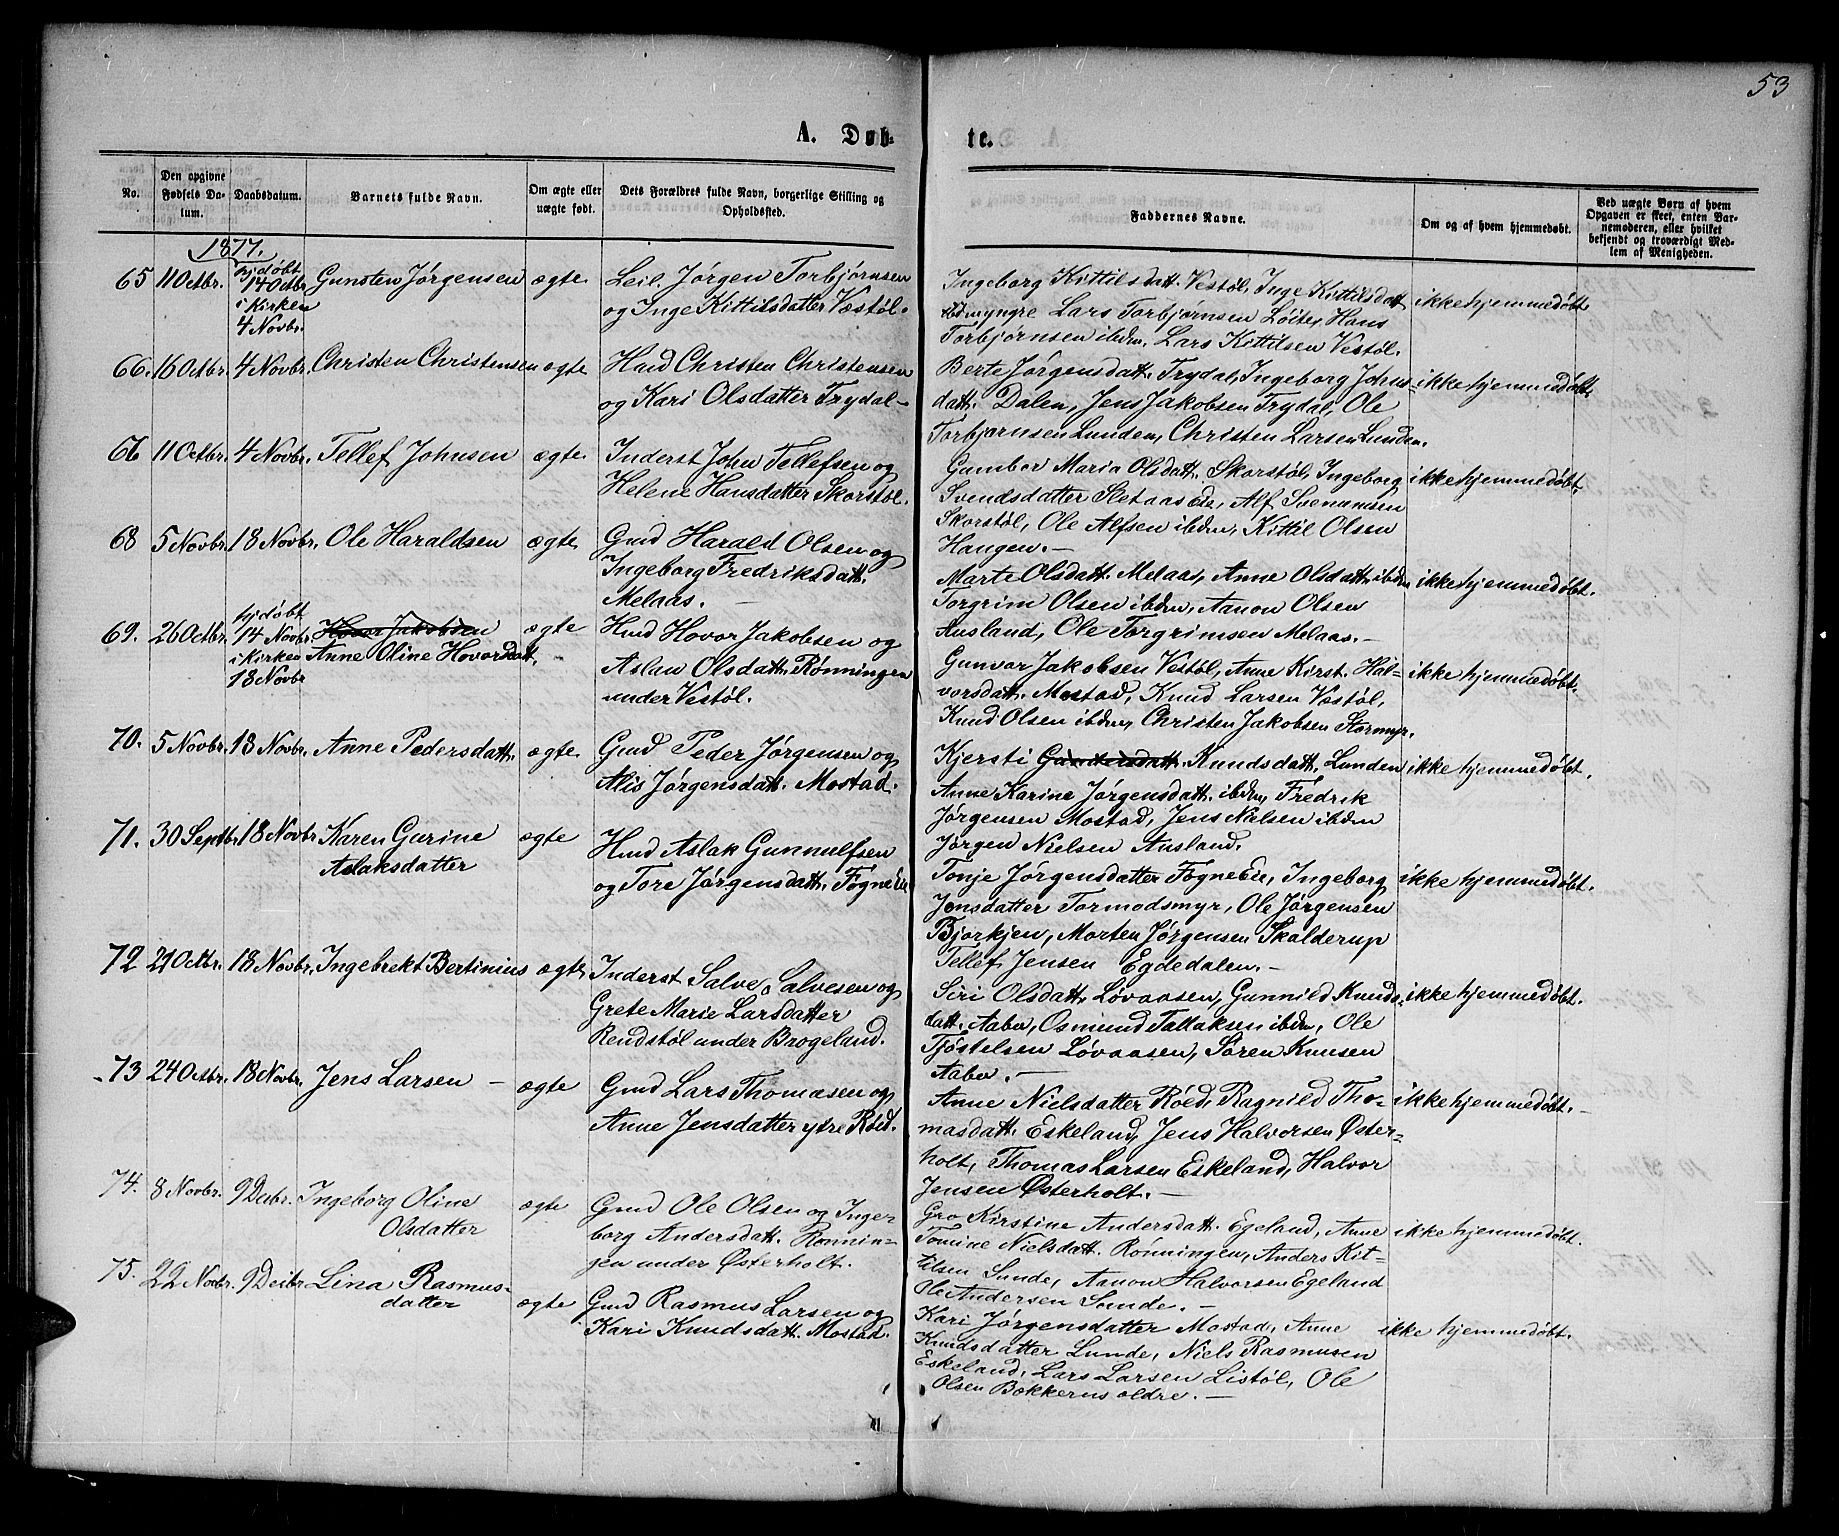 53
A. Døb-
te.
No.
Den opgivne Fødsels Da-tum.
Daabsdatum.
Barnets fulde Navn.
Om ægte eller uægte født.
Dets Forældres fulde Navn, borgerlige Stilling og Opholdssted.
Faddernes Navne.
Om og af hvem hjemmedøbt.
Ved uægte Børn af hvem Opgaven er skeet, enten Bar-nemoderen, eller hvilket bekjendt og troværdigt Med-lem af Menigheden.
1877.
65 11 Octbr. hjdøbt 14 Octbr. i Kirken 4 Novbr. Gunsten Jørgensen ægte
Leil. Jørgen Torbjørnsen
og Inge Kittilsdatter Vestøl.
Ingeborg Kittilsdatt. Vestøl, Inge Kittilsdatt.
ibdm yngre Lars Torbjørnsen Løite, Hans
Torbjørnsen ibdm, Lars Kittilsen Vestøl.
ikke hjemmedøbt
66. 16 Octbr. 4 Novbr. Christen Christensen ægte
Hmd Christen Christensen
og Kari Olsdatter Trydal
Berte Jørgensdatt. Trydal, Ingeborg Johns-
datt. Dalen, Jens Jakobsen Trydal, Ole
Torbjørnsen Lunden, Christen Larsen Lunden.
ikke hjemmedøbt.
66 11 Octbr. 4 Novbr. Tellef Johnsen ægte
Inderst John Tellefsen og
Helene Hansdatter Skorstøl.
Gumbor Maria Olsdatt. Skorstøl, Ingeborg
Svendsdatter Sletaas Eie, Alf Svenumsen
Skorstøl, Ole Alfsen ibdm, Kittil Olsen
Haugen.
ikke hjemmedøbt.
68 5 Novbr. 18 Novbr. Ole Haraldsen ægte
Gmd Harald Olsen og
Ingeborg Fredriksdatt.
Melaas.
Marte Olsdatt. Melaas, Anne Olsdatt. ibdm
Torgrim Olsen ibdm, Aanon Olsen
Ausland, Ole Torgrimsen Melaas.
ikke hjemmedøbt.
69. 26 Octbr. hjdøbt 14 Novbr. i Kirken 18 Novbr Hovor Jakobsen
Anne Oline Hovorsdatt. ægte
Hmd Hovor Jakobsen og
Aslau Olsdatt. Rønningen
under Vestøl.
Gunvor Jakobsen Vestøl, Anne Kirst. Hal-
vorsdatt. Mostad, Knud Larsen Vestøl,
Knud Olsen ibdm, Christen Jakobsen Stormyr.
ikke hjemmedøbt.
70. 5 Novbr. 18 Novbr. Anne Pedersdatt. ægte
Gmd Peder Jørgensen og
Alis Jørgensdatt. Mostad.
Kjersti Knudsdatt. Lunden
Anne Karine Jørgensdatt. ibdm, Fredrik
Jørgensen Mostad, Jens Nielsen ibdm
Jørgen Nielsen Ausland.
ikke hjemmedøbt.
71. 30 Septbr. 18 Novbr. Karen Gurine
Aslaksdatter ægte
Hmd Aslak Gunnulfsen
og Tore Jørgensdatt. Fogne Eie
Tonje Jørgensdatter Fogne Eie, Ingeborg
Jensdatter Tormodsmyr, Ole Jørgensen
Bjorkjen, Morten Jørgensen Skalderup
Tellef Jensen Egdedalen.
ikke hjemmedøbt.
72 21 Octbr. 18 Novbr. Ingebrekt Bertinius ægte
Inderst Salve Salvesen og
Grete Marie Larsdatter
Rendstøl under Brogeland.
Siri Olsdatt. Løvaasen, Gunnild Knuds-
datt. Aabø, Osmund Tallaksen ibdm, Ole
Tjøstelsen Løvaasen, Søren Knusen
Aabø.
ikke hjemmedøbt.
73 24 Octbr. 18 Novbr. Jens Larsen ægte
Gmd Lars Thomasen og
Anne Jensdatter ytre Røed.
Anne Nielsdatter Røed, Ragnild Tho-
masdatt. Eskeland, Jens Halvorsen Øster-
holt, Thomas Larsen Eskeland, Halvor
Jensen Østerholt.
ikke hjemmedøbt.
74. 8 Novbr. 9 Decbr. Ingeborg Oline
Olsdatter ægte
Gmd Ole Olsen og Inge-
borg Andersdatt. Rønnin-
gen under Østerholt.
Gro Kirstine Andersdatt. Egeland, Anne
Tomine Nielsdatt. Rønningen, Anders Kit-
tilsen Sunde, Aanon Halvorsen Egeland
Ole Andersen Sunde.
ikke hjemmedøbt.
75. 22 Novbr. 9 Decbr. Lina Rasmus-
datter ægte
Gmd Rasmus Larsen og
Kari Knudsdatt. Mostad.
Kari Jørgensdatter Mostad, Anne
Knudsdatter Lunde, Niels Rasmusen
Eskeland, Lars Larsen Listøl, Ole
Olsen Bakkerns aldre.
ikke hjemmedøbt.